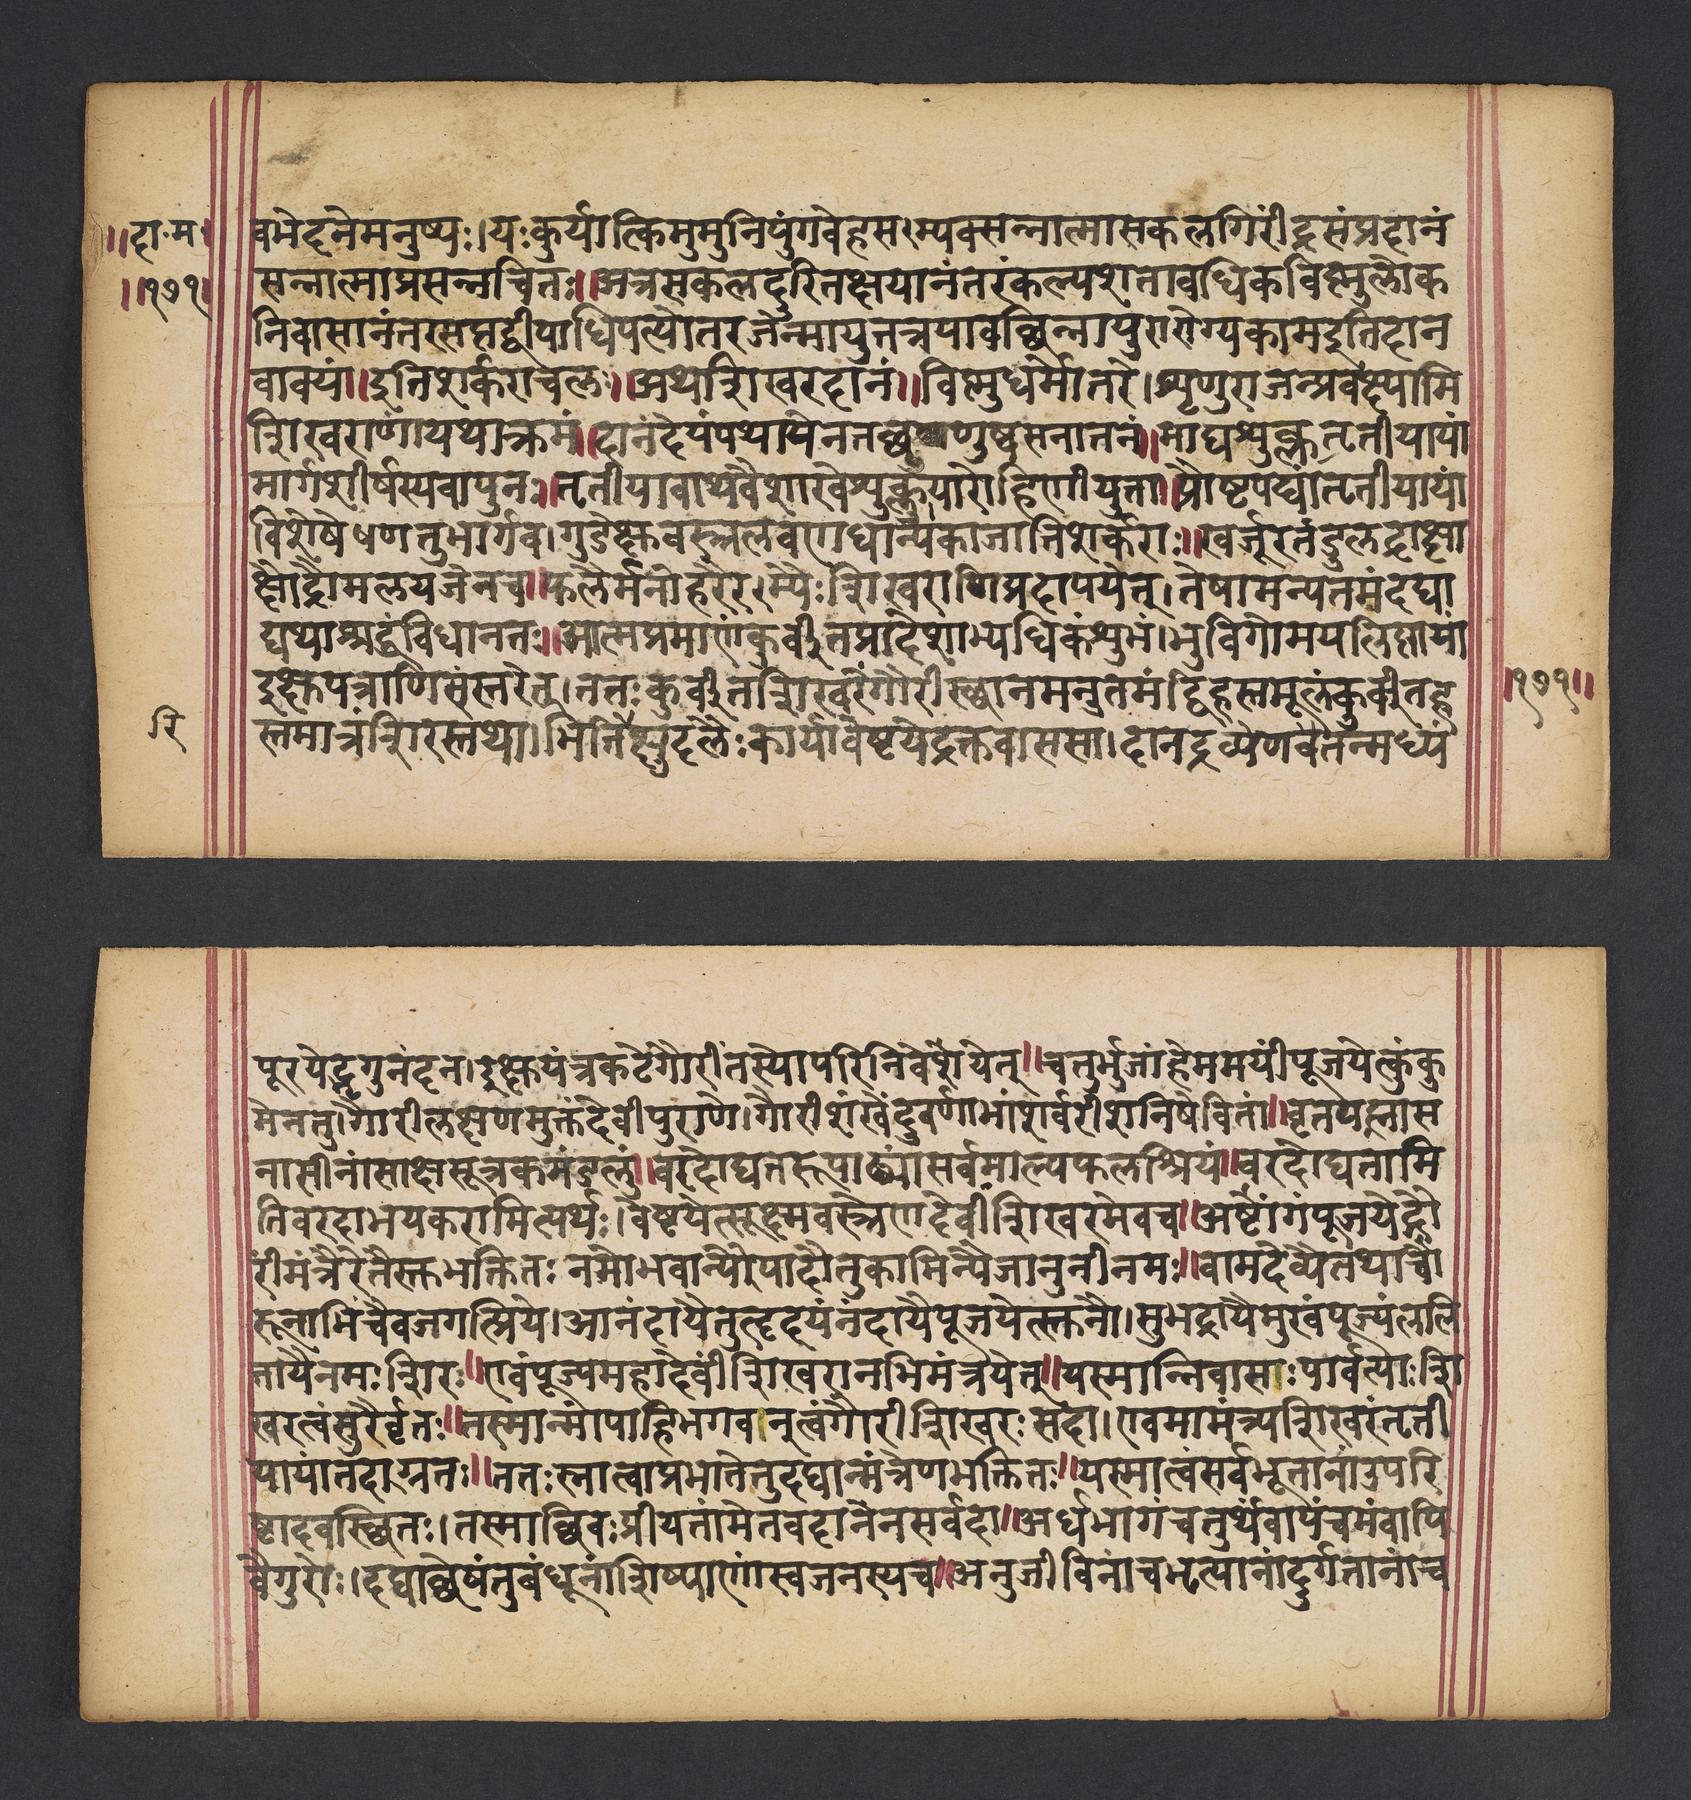 ॥दा॰म॰
॥१७१॥
वमेदनेमनुष्यः।यःकुर्यात्किमुमुनिपुंगवेहसम्यक्सन्नात्मासकलगिरींद्रसंप्रदानं
सन्नात्माप्रसन्नचितः॥अत्रसकलदुरितक्षयानंतरंकल्पशतावधिकविष्णुलोक
निवासानंतरसप्तद्वीपाधिपत्योतरजन्मायुतत्रयावछिन्नायुरारोग्यकामइतिदान
वाक्यं॥इतिशर्कराचलः॥अथशिखरदानं॥विष्णुधर्मोतरे।शृणुराजन्प्रवक्ष्यामि
शिखराणांयथाक्रमं॥दानंदेयंयथायेनतछृणुष्वसनातनं॥माघशुक्लतृतीयायां
मार्गशीर्षस्यवापुनः॥तृतीयावाथवैशाखेशुक्लायारोहिणीयुता॥प्रौष्टपद्यांतृतीयायां
विशेषेणतुभार्गव।गुडेक्षुवस्त्रलवणधान्यकाजातिशर्कराः॥खर्जूरतंडुलद्राक्षा
क्षौद्रैमलयजेनच॥फलैर्मनोहरैरम्यैःशिखराणिप्रदापयेत्।तेषामन्यतमंदद्या
द्यथाश्रद्धंविधानतः॥आत्मप्रमाणंकुर्वीतप्रादेशाभ्यधिकंशुभं।भुविगोमयलिप्तायां
इक्षुपत्राणिसंस्तरेत्।ततःकुर्वीतशिखरंगौरीस्थानमनुतमंद्विहस्तमूलंकुर्वीतह
स्तमात्रंशिरस्तथा।भितिरिक्षुदलैःकार्यावेष्टयेद्रक्तवाससा।दानद्रव्येणवैतन्मध्यं
रि
१७१॥
पूरयेद्भृगुनंदन।इक्षुयंत्रकटेगौरींतस्योपरिनिवेशयेत्॥चतुर्भुजांहेममयींपूजयेत्कुंकु
मेनतु।गौरीलक्षणमुक्तंदेवीपुराणे।गौरीशंखेंदुवर्णाभांशर्वरीशनिषेवितां॥वृतपद्मास
नासीनांसाक्षसूत्रकमंडलुं॥वरदोद्यतरूपाढ्यांसर्वमाल्यफलप्रियं॥वरदोद्यतामि
तिवरदाभयकरामित्यर्थः।वेष्टयेत्सूक्ष्मवस्त्रेणदेवींशिखरमेवच॥अष्टांगंपूजयेद्गौ
रींमंत्रैरेतैस्तुभक्तितः नमोभवान्यैपादौतुकामिन्यैजानुनीनमः॥वामदेव्यैतथाचो
रूनाभिंचैवजगत्प्रिये।आनंदायैतुहृदयंनंदायैपूजयेत्स्तनौ।सुभद्रायैमुखंपूज्यंललि
तायैनमःशिरः॥एवंपूज्यमहादेवींशिखरानभिमंत्रयेत्॥यस्मान्निवासःपार्वत्याःशि
खरत्वंसुरैर्वृतः॥तस्मान्मांपाहिभगवनत्वंगौरीशिखरः सदा।एवमामंत्र्यशिखरंतृती
यायांतदाग्रतः॥ततःस्नात्वाप्रभातेतुदद्यान्मंत्रेणभक्तितः॥यस्मात्वंसर्वभूतानांउपरि
ष्टादवस्थितः।तस्माछिवःप्रीयतांमेतवदानेनसर्वदा॥अर्धभागंचतुर्थंवापंचमंवापि
वैगुरोः।दद्याछेषंतुबंधूनांशिष्याणांस्वजनस्यच॥अनुजीविनांचभृत्यानांदुर्गतानांच